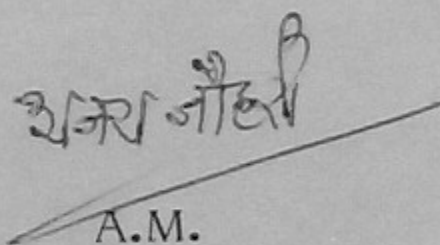 अजय जौहरी
A.M.